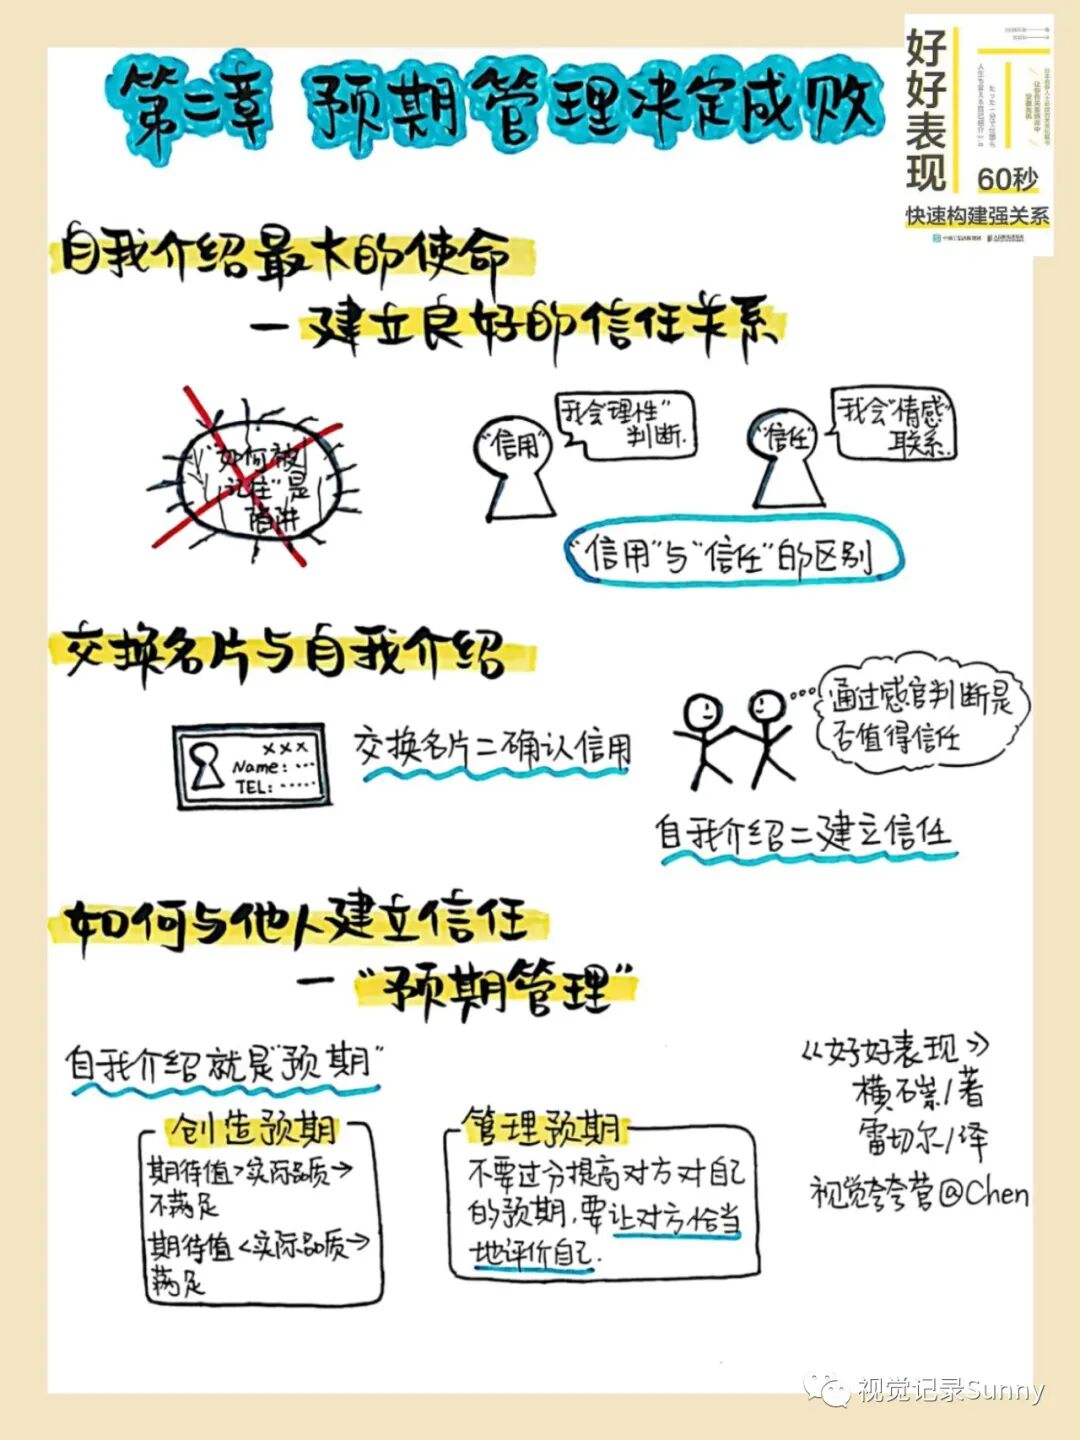 第二章 预期管理决定成败
好好表现
60秒
快速构建强关系
自我介绍最大的使命
一 建立良好的信任关系
"如何被
记住"是
陷阱
"信用"
我会"理性"
判断.
"信任"
我会"情感"
联系.
"信用"与"信任"的区别
交换名片与自我介绍
×××
Name: ...
TEL: .....
交换名片=确认信用
通过感官判断是
否值得信任
自我介绍=建立信任
如何与他人建立信任
一 "预期管理"
自我介绍就是"预期"
创造预期
期待值>实际品质→
不满足
期待值<实际品质→
满足
管理预期
不要过分提高对方对自己
的预期,要让对方恰当
地评价自己.
《好好表现》
横石崇/著
雷切尔/译
视觉夸夸营@Chen
视觉记录Sunny